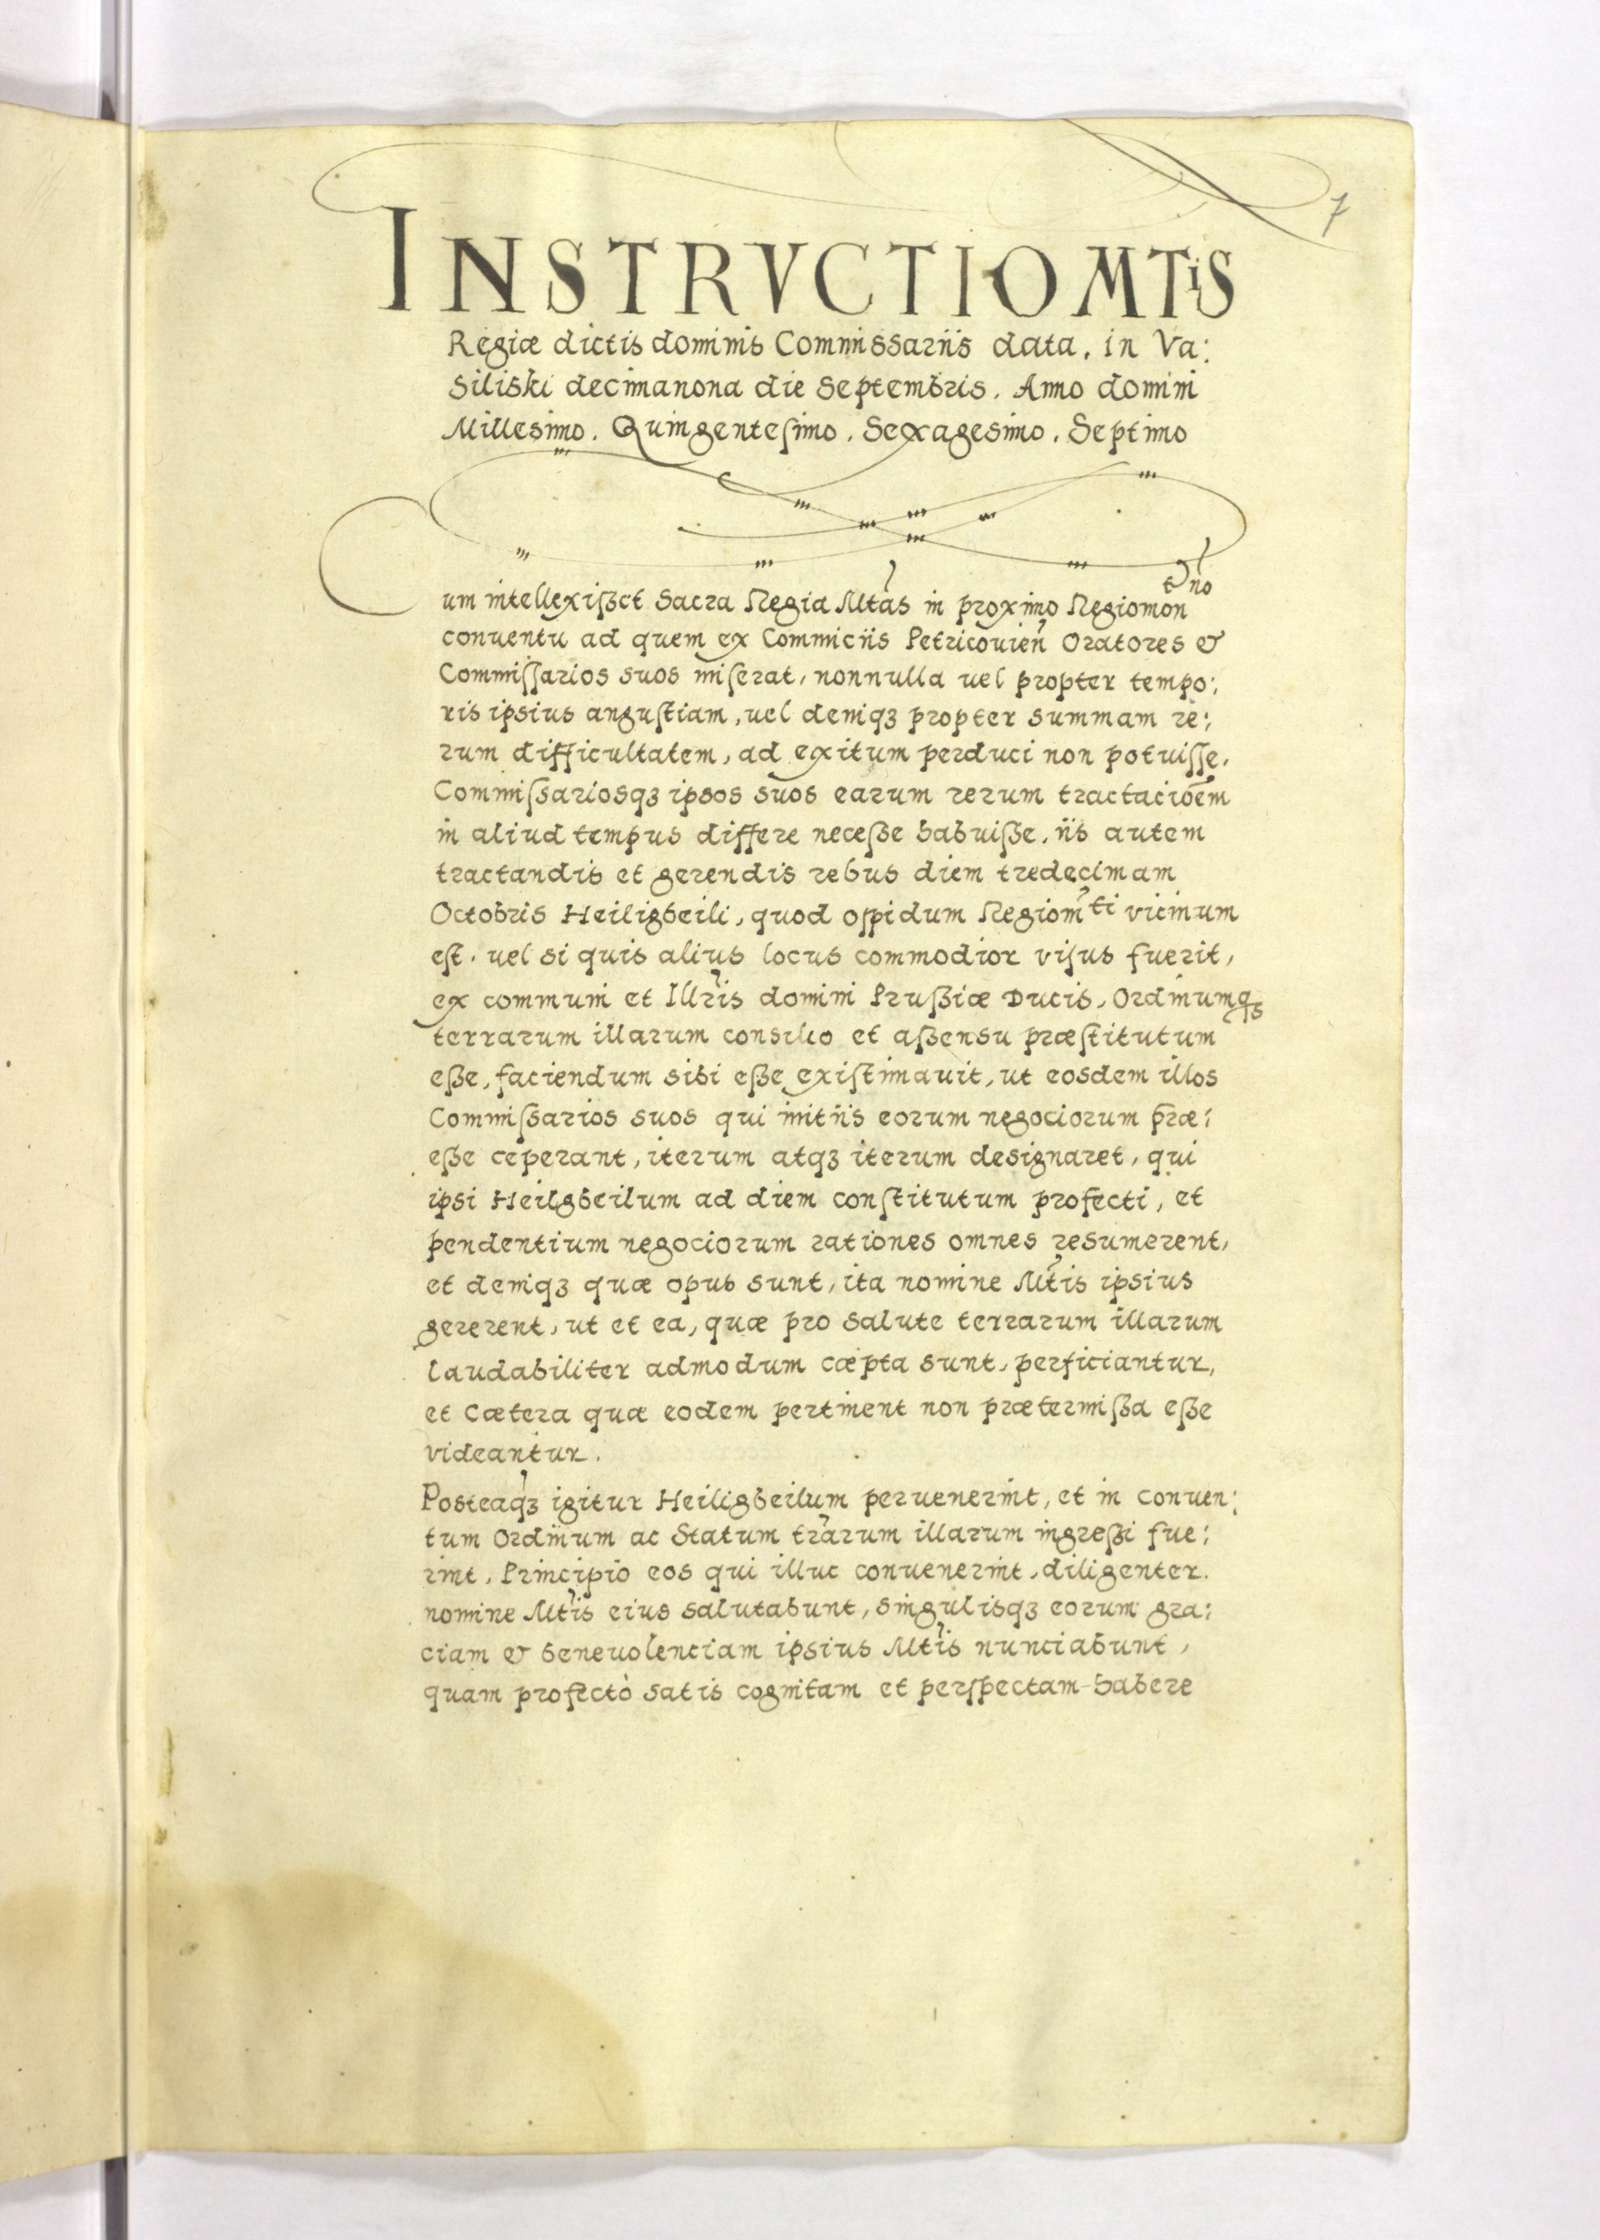 7
INSTRVCTIO MTiS
Regiæ dictis dominis Commissariis data. in Va:
siliski decimanona die Septembris. Anno domini
Millesimo. Quingentesimo. Sexagesimo. Septimo
Cum intellexißet Sacra Regia Mtas in proximo Regiomontno
conuentu ad quem ex Commiciis Petricouien Oratores &
Commißarios suos miserat, nonnulla uel propter tempo:
ris ipsius angustiam, uel deniqʒ propter summam re:
rum difficultatem, ad exitum perduci non potuisse.
Commissariosqʒ ipsos suos earum rerum tractacioem
in aliud tempus differe neceße habuiße, iis autem
tractandis et gerendis rebus diem tredecimam
Octobris Heiligbeili, quod oppidum Regiomti vicinum
est. uel si quis alius locus commodior visus fuerit,
ex communi et Illris domini Prußiæ Ducis, Ordinumqʒ
terrarum illarum consilio et aßensu præstitutum
eße, faciendum sibi eße existimauit, ut eosdem illos
Commissarios suos qui initiis eorum negociorum præ:
eße ceperant, iterum atqʒ iterum designaret, qui
ipsi Heilgbeilum ad diem constitutum profecti, et
pendentium negociorum rationes omnes resumerent,
et deniqʒ quæ opus sunt, ita nomine Mtis ipsius
gererent, ut et ea, quæ pro salute terrarum illarum
laudabiliter admodum cæpta sunt, perficiantur,
et cætera quæ eodem pertinent non prætermißa eße
videantur.
Posteaqʒ igitur Heiligbeilum peruenerint, et in conuen:
tum Ordinum ac Statum trarum illarum ingreßi fue:
rint, Principio eos qui illuc conuenerint, diligenter.
nomine Mtis eius salutabunt, singulisqʒ eorum gra:
ciam & beneuolenciam ipsius Mtis nunciabunt,
quam profectò satis cognitam et perspectam habere